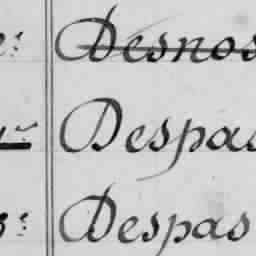 Desnos
Despas
Despas